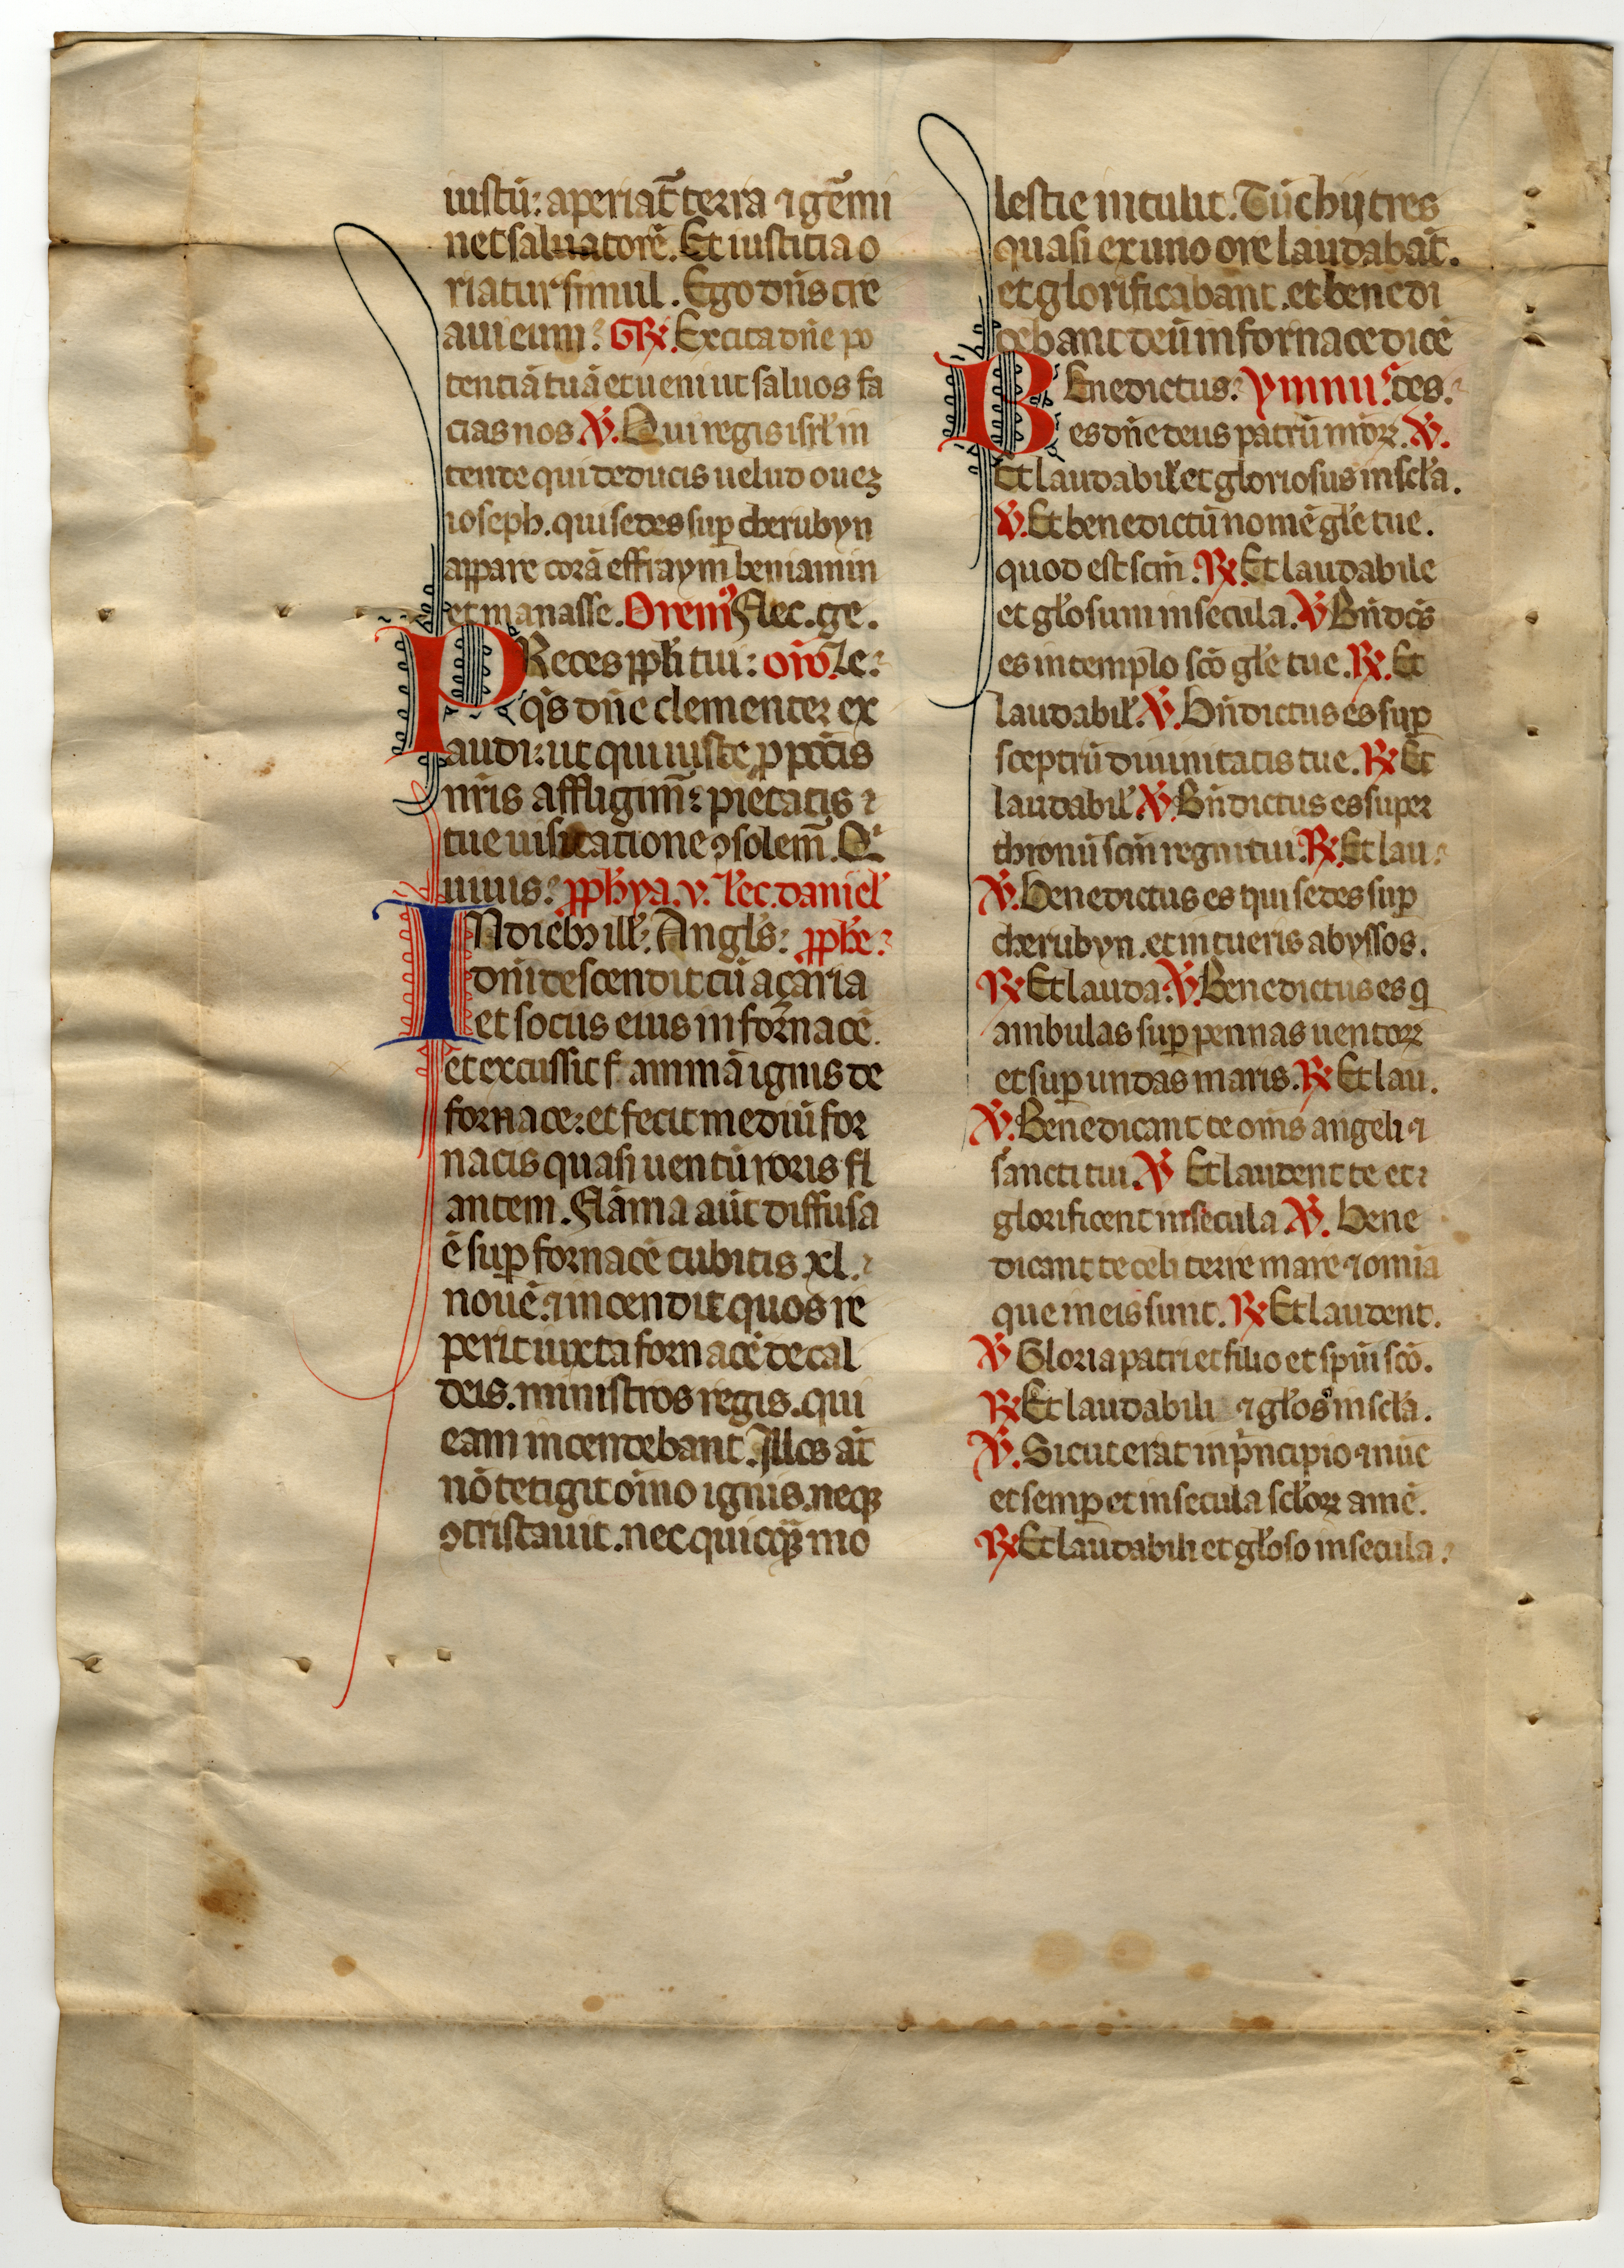 iustū: aperiat̄ terra ⁊ gēmi
net saluatorē. Et iusticia o
riatur simul. Ego dn̄s cre
aui eum: GR̷. Excita dn̄e po
tenciā tuā et ueni ut saluos fa
cias nos ℣. Qui regis isrl̄ in
tende qui deducis uelud oueꝫ
ioseph. qui sedes sup̄ cherubyn
appare corā effraym beniamin
et manasse. Oremꝰ Flec. ge.
PReces ppl̄i tui: oīo. Ze:
q̄s dn̄e clementer ex
audi: ut qui iuste ꝓ pctīs
nr̄is affligim̄: pietatis
tue uisitatione ꝯsolem̄. Qⁱ
uiuis: pph̄ya. v. lec. daniel̄
IN dieb; ill̄. Angl̄s: pph̄e:
dn̄i descendit cū açaria
et socus eius in fornacē.
et excussit f ammā ignis de
fornace: et fecit mediū for
nacis quasi uentū roris fl
antem. Flāma aūt diffusa
ē sup̄ fornacē cubitis xl.
nouē. ⁊ incendit quos re
perit iuxta fornacē de cal
deis. ministros regis. qui
eam incendebant. Illos at̄
nō tetigit oīno ignis. neqꝫ
ꝯtristauit. nec quicqꝫ mo
lestie intulit. Tūc hij tres
quasi ex uno ore laudabāt.
et glorificabānt. et benedi
cebant deū in fornace dicē
BEnedictus: ymnuˢ. tes.
es dn̄e deus patrū nr̄oꝝ. ℣.
Et laudabil̄ et gloriosus in scl̄a.
℣. Et benedictū nomē gl̄e tue.
quod est scm̄. ℟. Et laudabile
et gl̄osum in secula. ℣ Bn̄dcs̄
es in templo scō gl̄e tue. ℟. Et
laudabil̄. ℣. Bn̄dictus es sup̄
sceptrū diuinitatis tue. ℟ Et
laudabil̄ ℣. Bn̄dictus es super
thronū scm̄ regni tui. ℟. Et lau.
℣. Benedictus es qui sedes sup̄
cherubyn. et intueris abyssos.
℟ Et lauda. ℣. Benedictus es q̄
ambulas sup̄ pennas uentoꝝ
et sup̄ undas maris. ℟ Et lau.
℣. Benedicant te om̄s angeli ⁊
sancti tui. ℣ Et laudent te et
glorificent in secula ℣. Bene
dicant te celi terre mare ⁊ omīa
que in eis sunt. ℟ Et laudent.
℣ Gloria patri et filio et spūi scō.
℟ Et laudabili ⁊ gl̄osº in scl̄a.
℣. Sicut erat in pⁱncipio ⁊ nūc
et semp̄ et in secula scl̄oꝝ amē.
℟ Et laudabili et gl̄oso in secula.